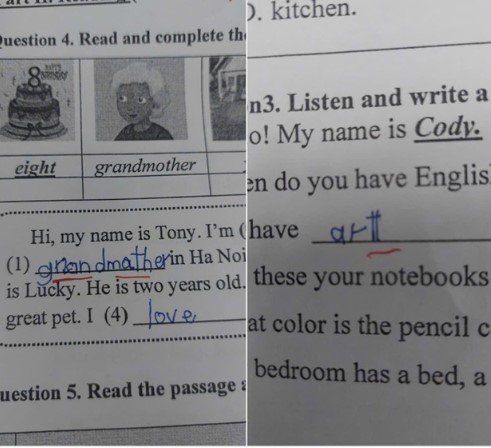 Question 4. Read and complete th
8
eight
grandmother
Hi, my name is Tony. I'm (
(1) grandmather in Ha Noi
is Lucky. He is two years old.
great pet. I (4) love
uestion 5. Read the passage a
D. kitchen.
n3. Listen and write a
o! My name is Cody.
en do you have Englis
have artt
these your notebooks
at color is the pencil c
bedroom has a bed, a